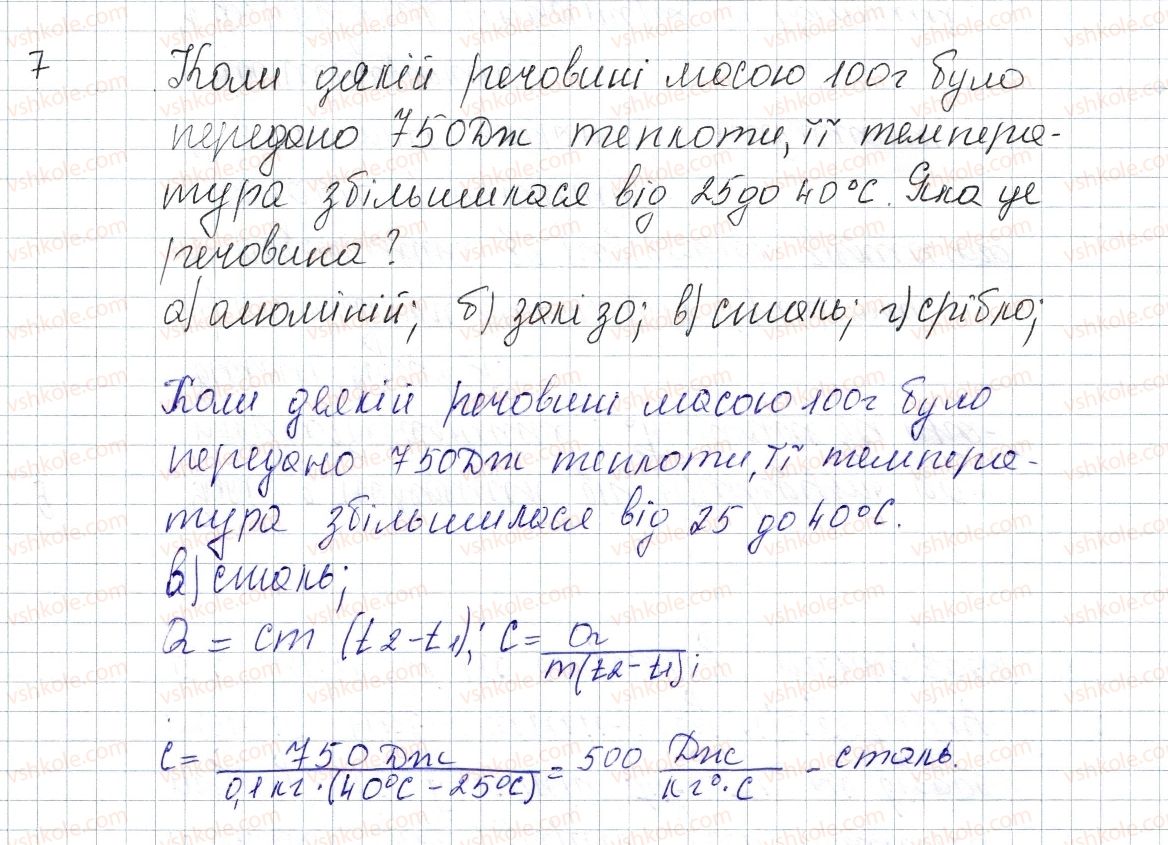 7
Коли деякій речовині масою 100г було
передано 750Дж теплоти, її темпера-
тура збільшилася від 25 до 40°C. Яка це
речовина?
а) алюміній; б) залізо; в) сталь; г) срібло;
Коли деякій речовині масою 100г було
передано 750Дж теплоти, її темпера-
тура збільшилася від 25 до 40°C.
в) сталь;
Q = cm (t2-t1); c = Q / m(t2-t1);
c = 750 Дж / 0,1 кг·(40°C - 25°C) = 500 Дж / кг°·C - сталь.